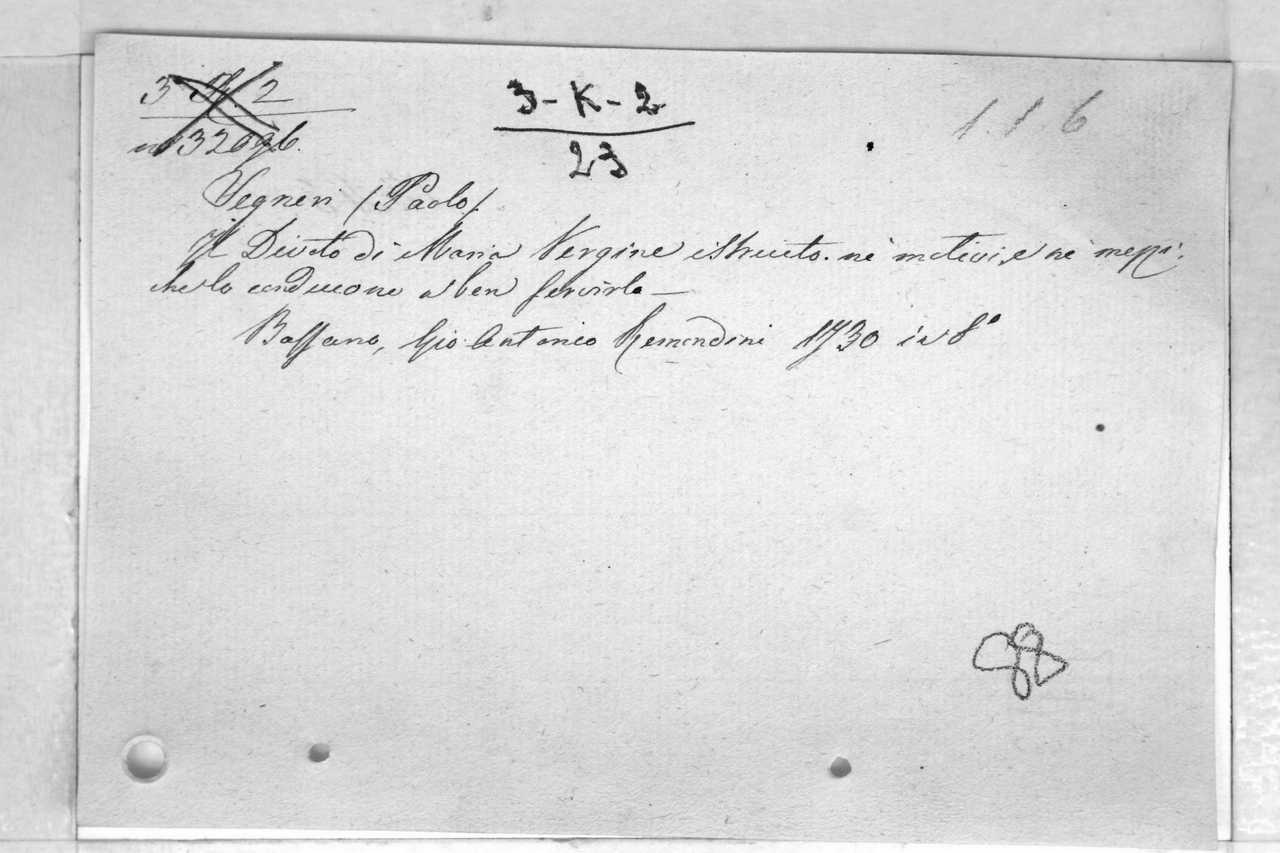 3 2
3-K-2
23
1.1.6
Segneri (Paolo)
Il Divoto di Maria Vergine istruito ne' motivi, e ne' mezzi,
che lo conducono a ben servirla —
Bassano, Gio Antonio Remondini 1730 in 8°